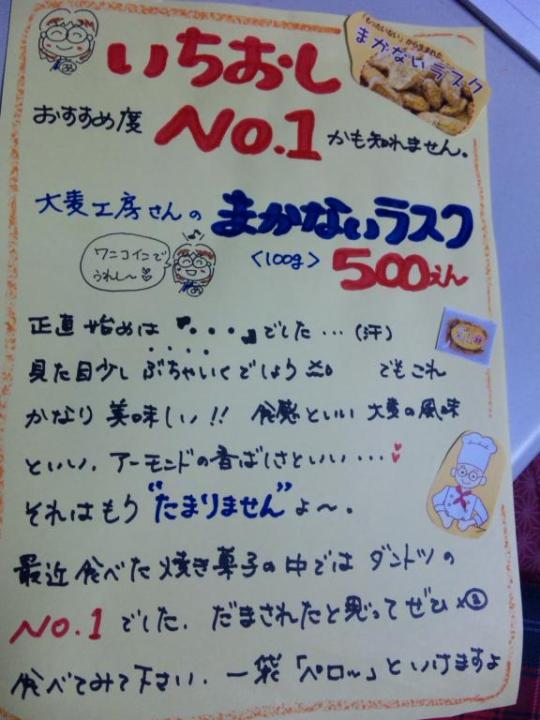 いちおし
「もったいない」から生まれた
まかないラスク
おすすめ度 No.1 かも知れません。
大麦工房さんの まかないラスク
ワニコインで
うれし〜
<100g> 500えん
正直始めは『・・・』でした・・・(汗)
見た目少しぶちゃいくでしょう でもこれ
かなり美味しい!! 食感といい大麦の風味
といい、アーモンドの香ばしさといい・・・♥
それはもう"たまりません"よ〜。
最近食べた焼き菓子の中ではダントツの
No.1でした。だまされたと思ってぜひ×②
食べてみて下さい。一袋「ペロッ」といけますよ